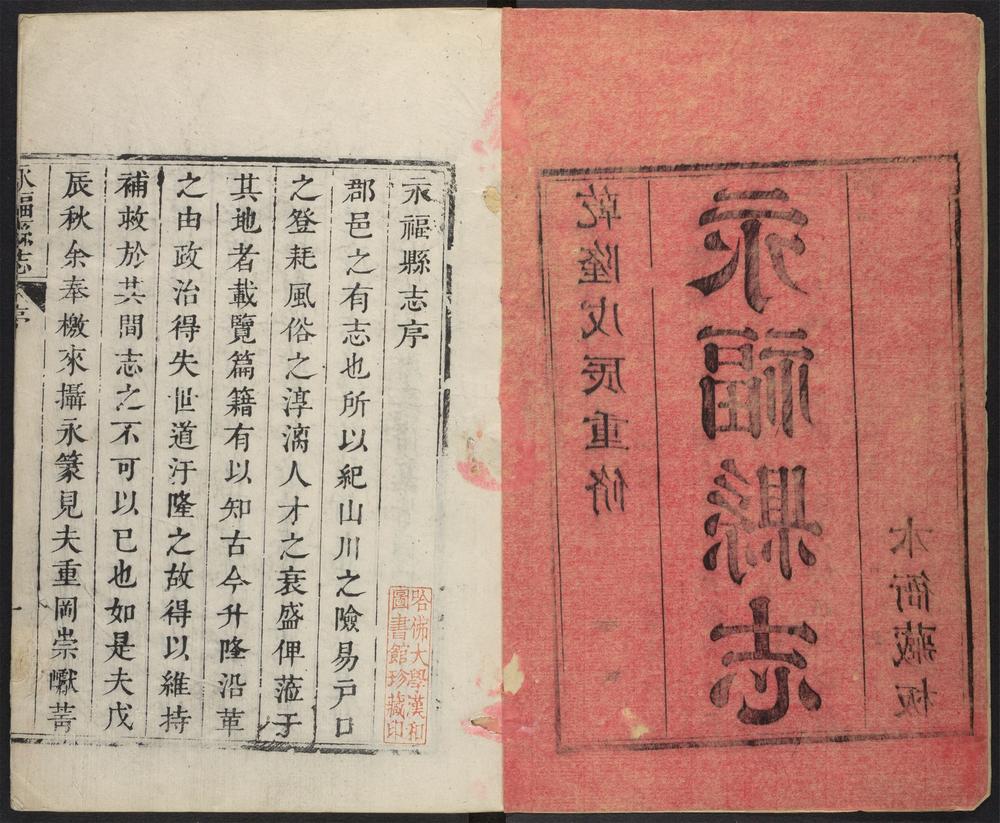 乾隆戊辰重修
永福縣志
本衙藏板
永福縣志序
郡邑之有志也所以紀山川之險易戸口
之登耗風俗之淳漓人才之衰盛俾蒞于
其地者載覽篇籍有以知古今升隆沿革
之由政治得失世道汙隆之故得以維持
補救於其間志之不可以已也如是夫戊
辰秋余奉檄來攝永篆見夫重岡崇巘菁
永福縣志 序 一
哈佛大學漢和
圖書館珍藏印